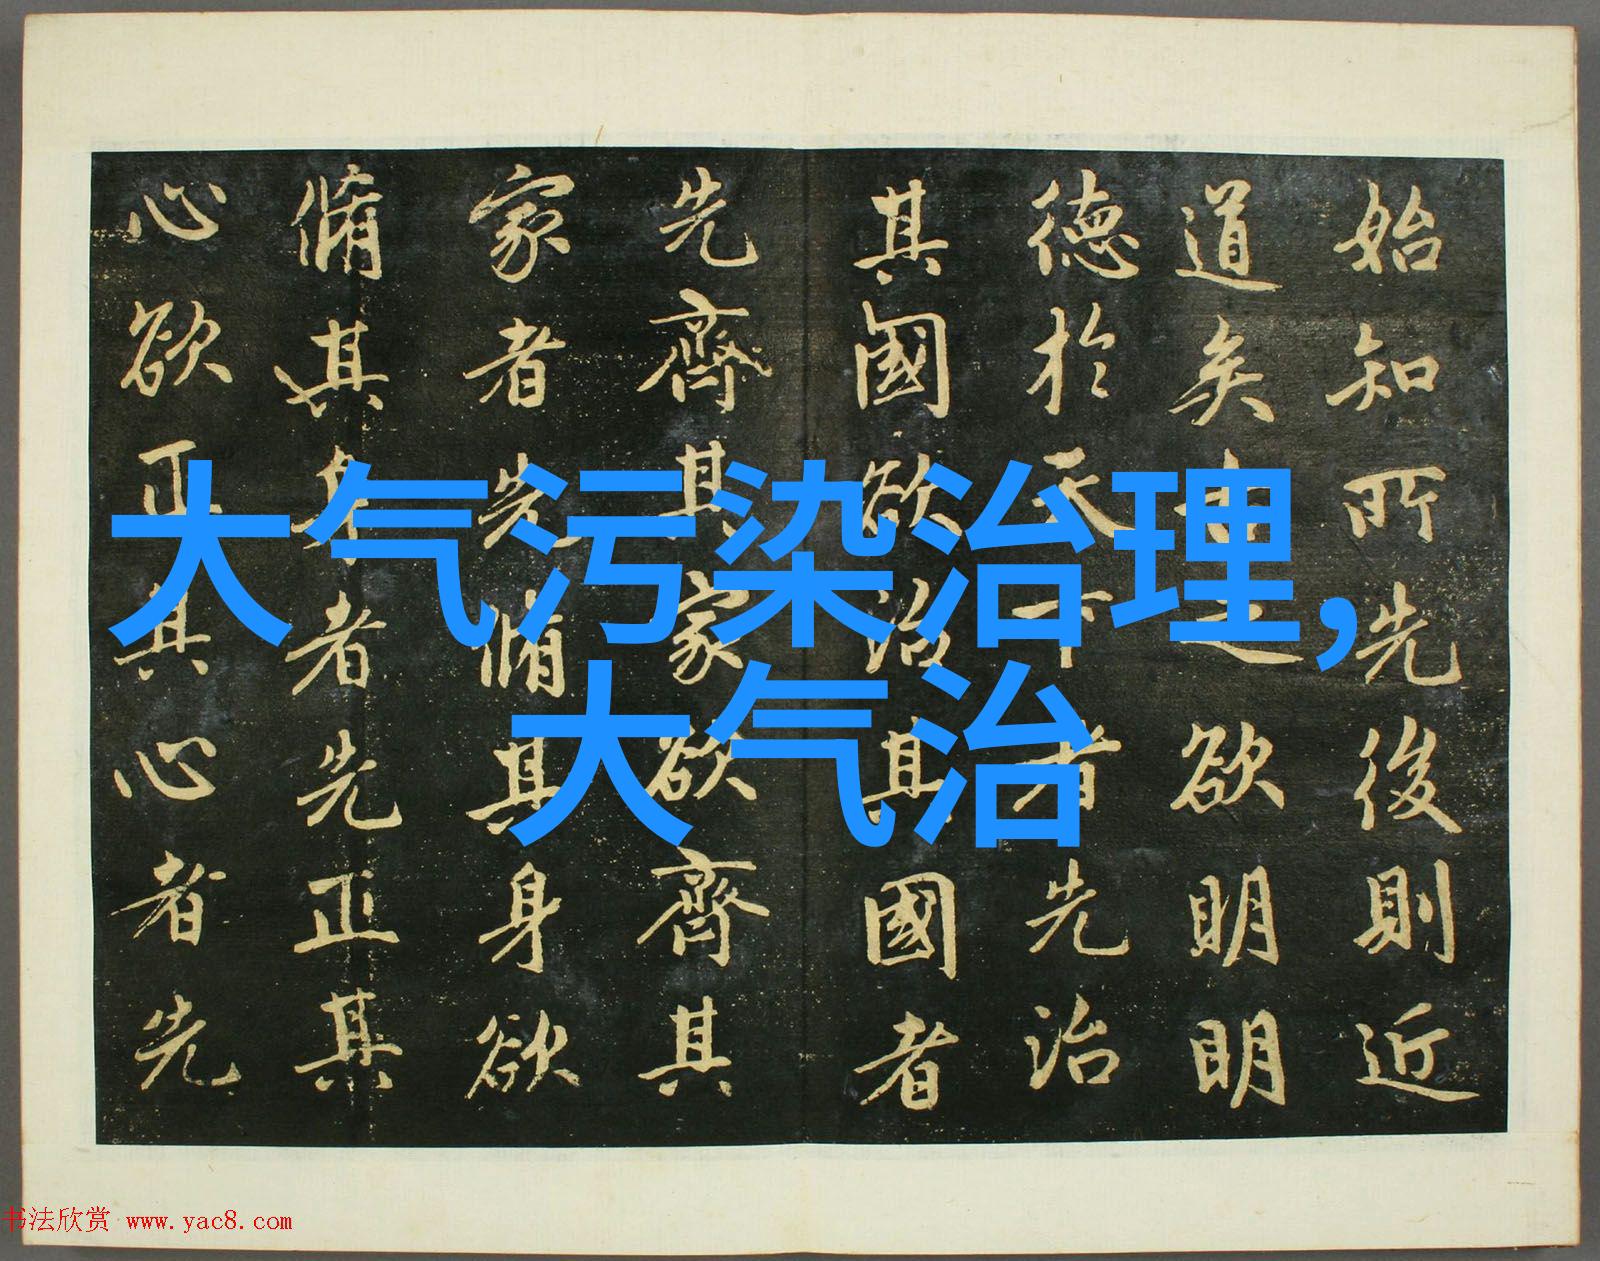 始知所先後則近
道矣古之欲明明
德於天下者先治
其國欲治其國者
先齊其家欲齊其
家者先脩其身欲
脩其身者先正其
心欲正其心者先
大气污染治理,
大气治
书法欣赏 www.yac8.com